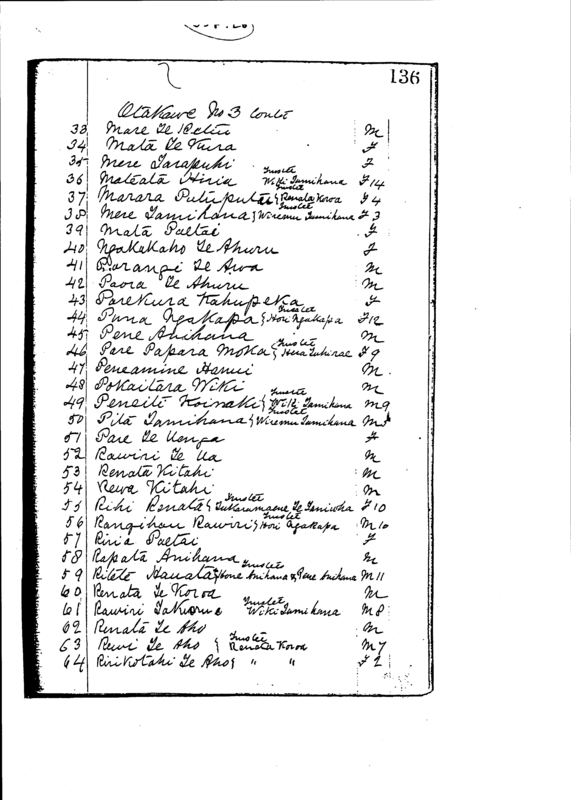 136
Otakawe No 3 Contd
33 Mare Te M
34 Mata Te Kura F
35 Mere Tarapuhi F
36 Mateata Hiria Trustee Wiki Tamihana F 14
37 Marara Putuputu { Trustee Renata Koroa F 4
38 Mere Tamihana { Trustee Wiremu Tamihana F 3
39 Mata Paetai F
40 Ngakakaho Te Ahuru F
41 Parangi Te Awa M
42 Paora Te Ahuru M
43 Parekura Kahupeka F
44 Puna Ngakapa { Trustee Hori Ngakapa F 12
45 Pene Anihana M
46 Pare Papara Moka { Trustee Hera F 9
47 Peneamine Hamui M.
48 Pokaitara Wiki M
49 Peneiti Koinaki { Trustee Wiki Tamihana M 9
50 Pita Tamihana { Trustee Wiremu Tamihana M 5
51 Pare Te Uenga F
52 Rawiri Te Ua M
53 Renata Kitahi M
54 Rewa Kitahi M
55 Rihi Renata { Trustee Te Taniwha F 10
56 Rangihau Rawiri { Trustee Hori Ngakapa M 10
57 Riria Paetai F
58 Rapata Anihana M
59 Hauata { Trustee Hone Anihana & Pene Anihana M 11
60 Renata Te Koroa M
61 Rawiri Trustee Wiki Tamihana M 8
62 Renata Te Aho M
63 Rewi Te Aho { Trustee Renata Koroa M 7
64 Ririkotahi Te Aho { " " F 2